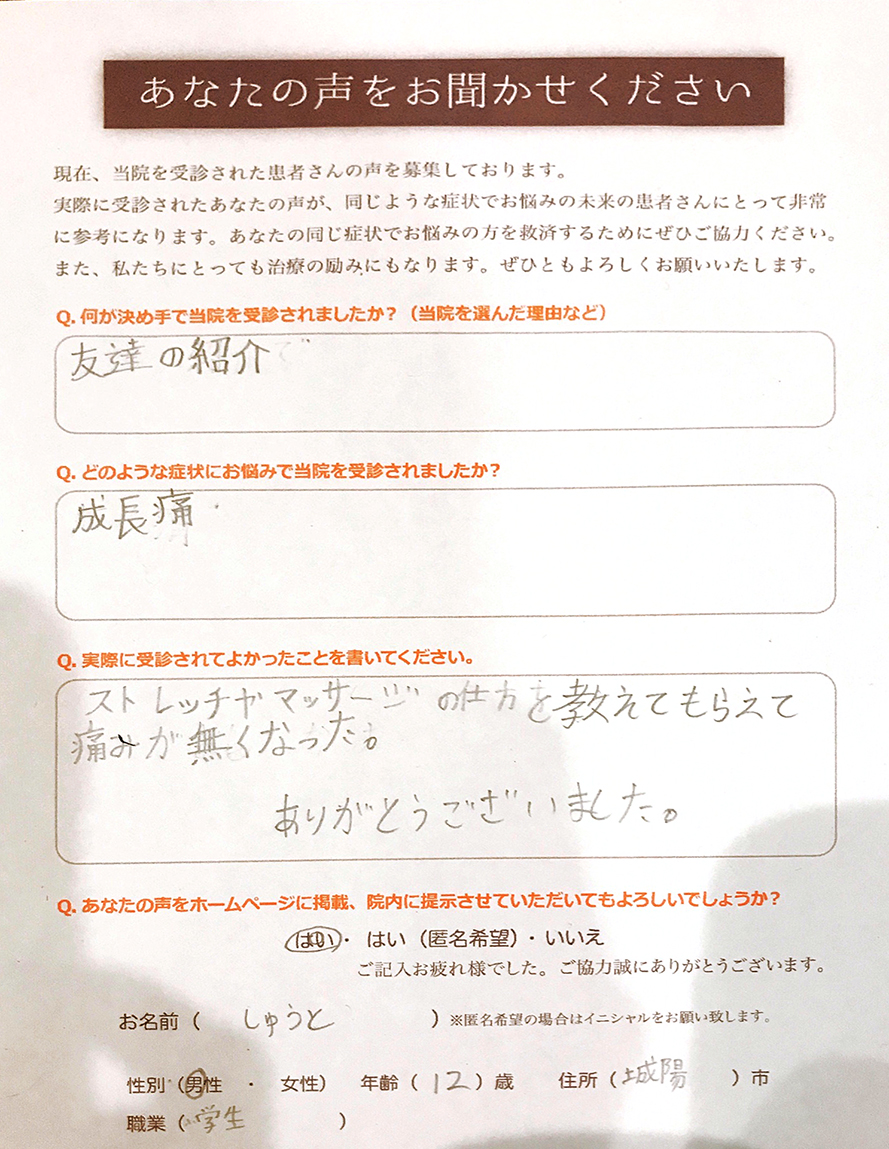 あなたの声をお聞かせください
現在、当院を受診された患者さんの声を募集しております。
実際に受診されたあなたの声が、同じような症状でお悩みの未来の患者さんにとって非常
に参考になります。あなたの同じ症状でお悩みの方を救済するためにぜひご協力ください。
また、私たちにとっても治療の励みにもなります。ぜひともよろしくお願いいたします。
Q. 何が決め手で当院を受診されましたか？（当院を選んだ理由など）
友達の紹介で
Q. どのような症状にお悩みで当院を受診されましたか？
成長痛
Q. 実際に受診されてよかったことを書いてください。
ストレッチやマッサージの仕方を教えてもらえて
痛みが無くなった。
ありがとうございました。
Q. あなたの声をホームページに掲載、院内に提示させていただいてもよろしいでしょうか？
はい・はい（匿名希望）・いいえ
ご記入お疲れ様でした。ご協力誠にありがとうございます。
お名前（ しゅうと ）※匿名希望の場合はイニシャルをお願い致します。
性別（男性 ・ 女性） 年齢（ 12 ）歳 住所（ 城陽 ）市
職業（小学生 ）